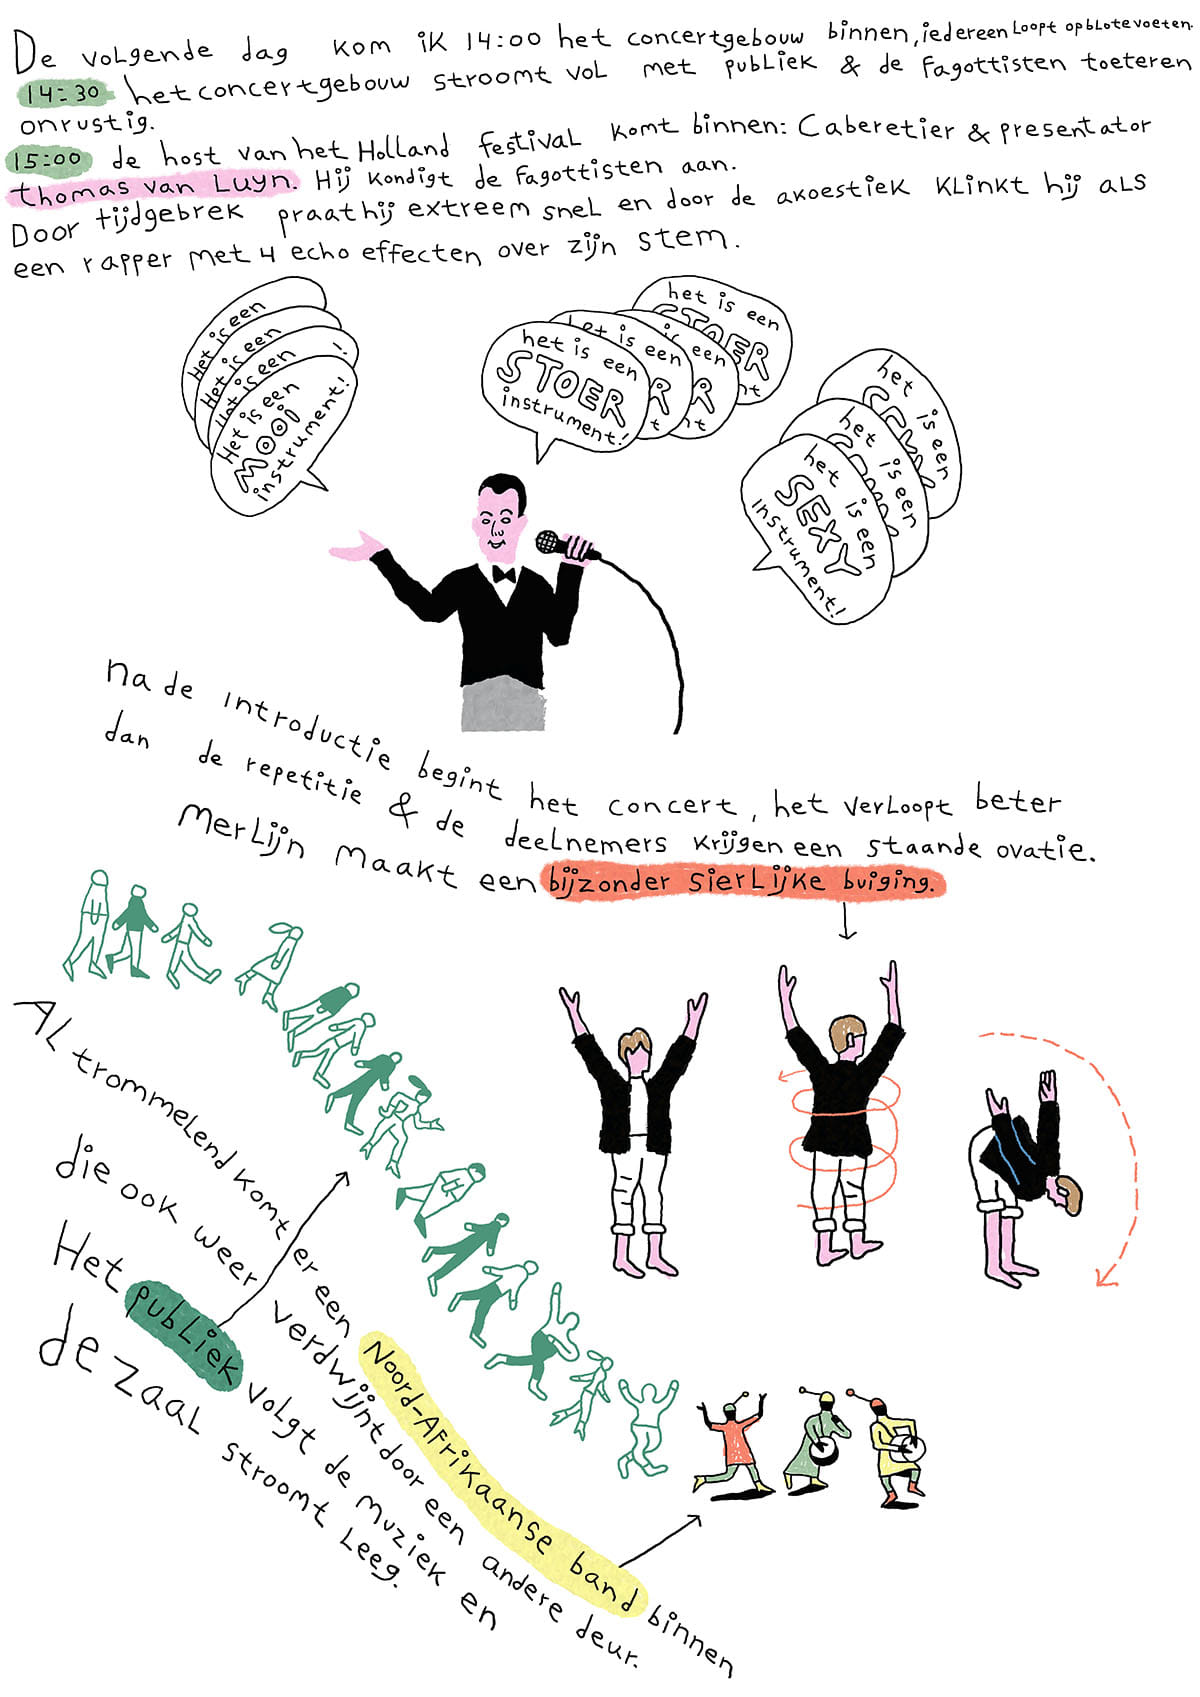 De volgende dag kom ik 14:00 het concertgebouw binnen, iedereen loopt op blote voeten.
14:30 het concertgebouw stroomt vol met publiek & de fagottisten toeteren
onrustig.
15:00 de host van het Holland festival komt binnen: Caberetier & presentator
thomas van Luyn. Hij kondigt de fagottisten aan.
Door tijdgebrek praat hij extreem snel en door de akoestiek klinkt hij als
een rapper met 4 echo effecten over zijn stem.
Het is een
Het is een
Het is een
Het is een
MOOI
instrument!
het is een
STOER
instrument!
het is een
is een
het is een
STOER
het is een
SEXY
instrument!
het is een
het is een
na de introductie begint het concert, het verloopt beter
dan de repetitie & de deelnemers krijgen een staande ovatie.
Merlijn maakt een bijzonder sierlijke buiging.
Al trommelend komt er een Noord-Afrikaanse band binnen
die ook weer verdwijnt door een andere deur.
Het publiek volgt de muziek en
de zaal stroomt leeg.